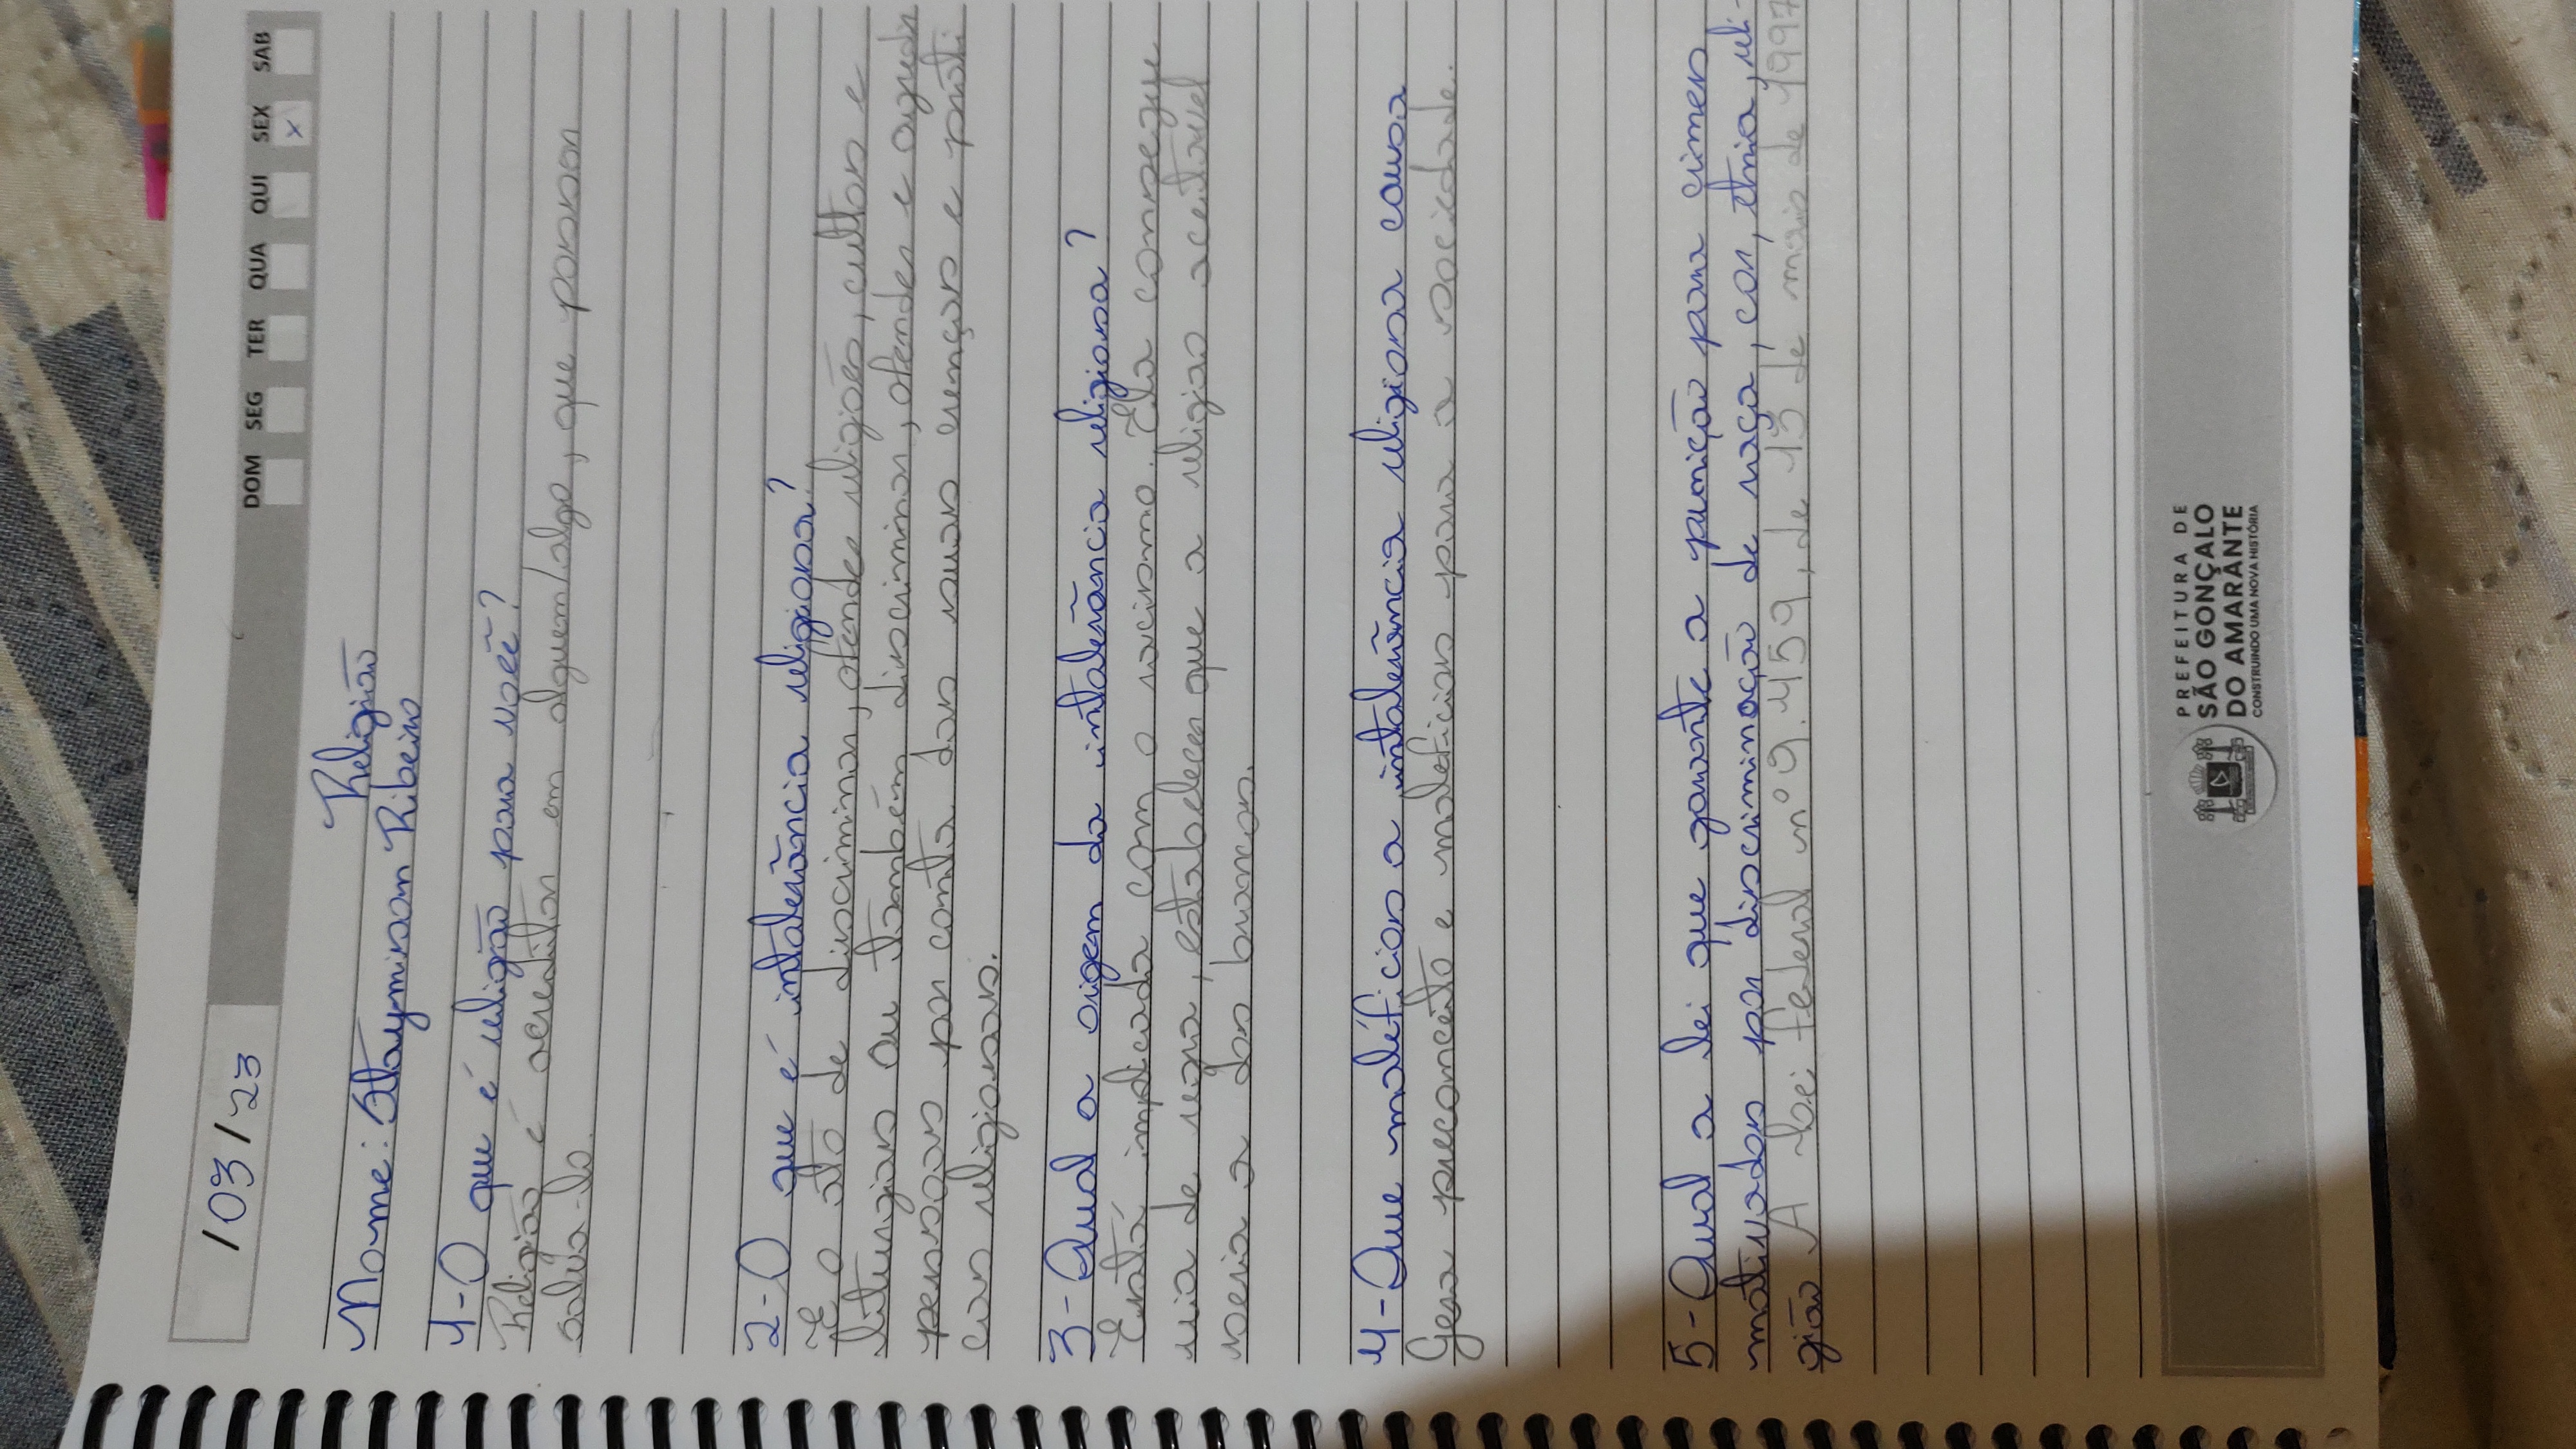 /03/23
DOM SEG TER QUA QUI SEX SAB
x
Religião
Nome: Staymison Ribeiro
1-O que é religião para você?
Religião é acreditar em alguem/algo, que possam
salva-lo.
2-O que é intolerância religiosa?
É o ato de discriminar, ofender religiões, cultos e
liturgias ou também discriminar, ofender e agredir
pessoas por conta das suas crenças e práti
cas religiosas.
3-Qual a origem da intolerância religiosa?
Está implicada com o racismo. Ela consegue
ria de regra, estabelecer que a religiao aceitavel
seria a dos brancos.
4-Que maléficios a intolerância religiosa causa
Gera preconceito e maleficios para a sociedade.
5-Qual a lei que garante a punição para crimes
motivados por discriminação de raça, cor, etnia, reli-
gião A Lei federal nº 9.459, de 13 de maio de 1997
PREFEITURA DE
SÃO GONÇALO
DO AMARANTE
CONSTRUINDO UMA NOVA HISTÓRIA